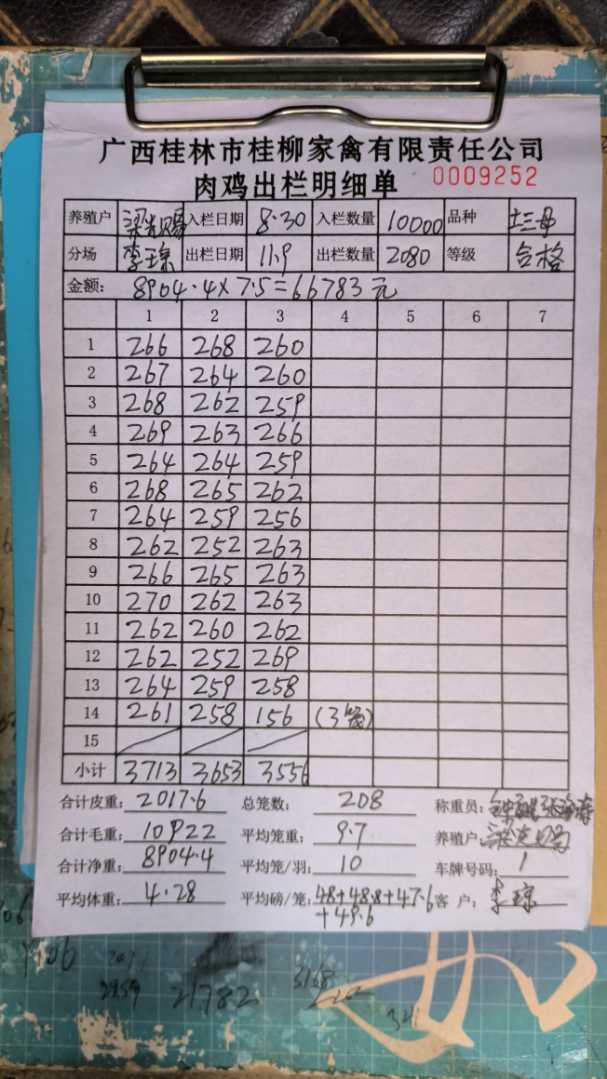 广西桂林市桂柳家禽有限责任公司
肉鸡出栏明细单 0009252
养殖户 梁光赐 入栏日期 8.30 入栏数量 10000 品种 土三母
分场 李琼 出栏日期 11.9 出栏数量 2080 等级 合格
金额: 8904.4×7.5=66783元
1 2 3 4 5 6 7
1 266 268 260
2 267 264 260
3 268 262 259
4 269 263 266
5 264 264 259
6 268 265 262
7 264 259 256
8 262 252 263
9 266 265 263
10 270 262 263
11 262 260 262
12 262 252 269
13 264 259 258
14 261 258 156 (3笼)
15
小计 3713 3653 3556
合计皮重: 2017.6 总笼数: 208 称重员:
合计毛重: 10922 平均笼重: 9.7 养殖户: 梁光赐
合计净重: 8904.4 平均笼/羽: 10 车牌号码: 1
平均体重: 4.28 平均磅/笼: 48+48.8+47.6 客户: 李琼
+49.6
21782